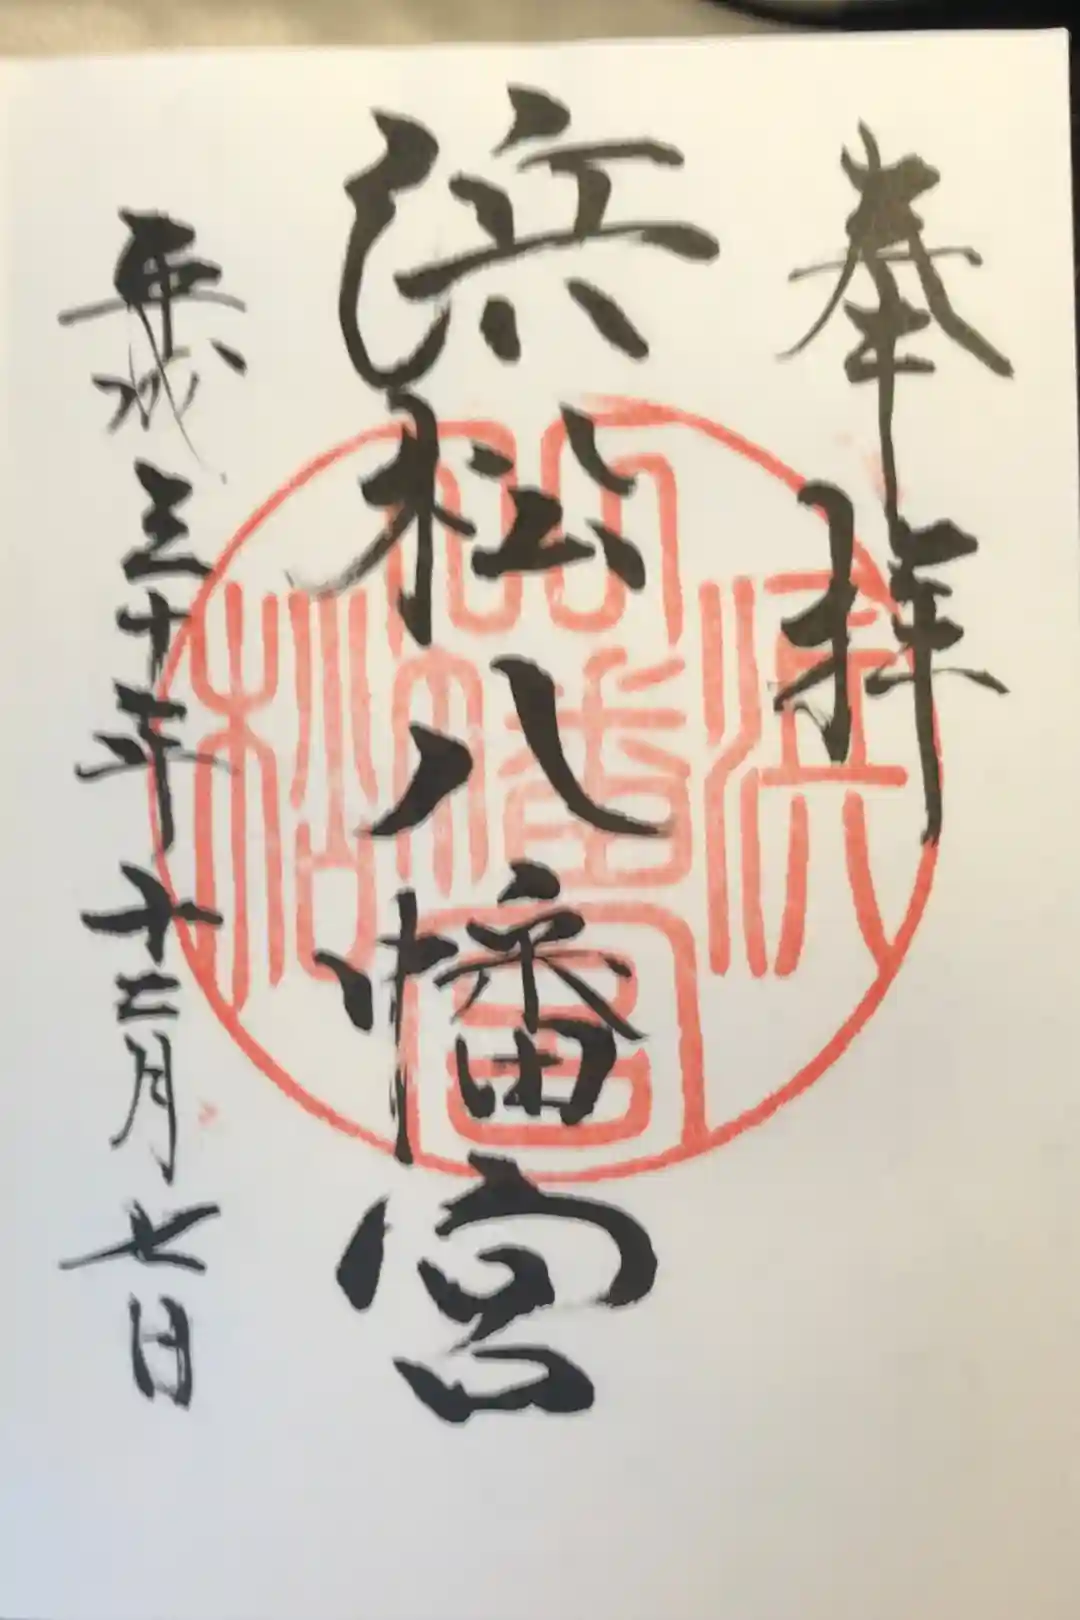 奉拝
浜松八幡宮
平成三十年十二月七日
浜松八幡宮